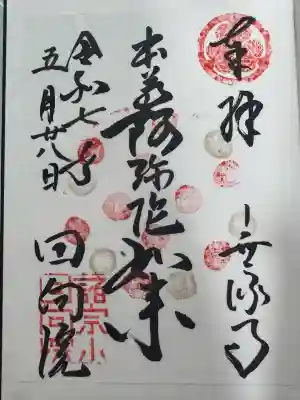 奉拝
無縁寺
本尊阿弥陀如来
回向院
令和七年
五月廿八日